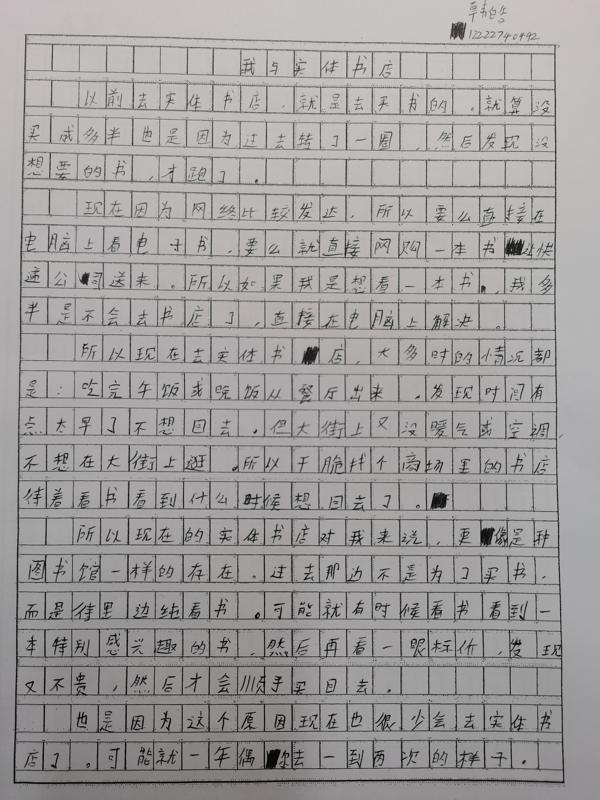 韩皓
12222740492
我与实体书店
以前去实体书店，就是去买书的。就算没
买成多半也是因为过去转了一圈，然后发现没
想要的书，才跑了。
现在因为网络比较发达，所以要么直接在
电脑上看电子书，要么就直接网购一本书让快
递公司送来。所以如果我是想看一本书，我多
半是不会去书店了，直接在电脑上解决。
所以现在去实体书店，大多时的情况都
是：吃完午饭或晚饭从餐厅出来。发现时间有
点太早了不想回去。但大街上又没暖气或空调，
不想在大街上逛。所以干脆找个商场里的书店
待着看书看到什么时候想回去了。
所以现在的实体书店对我来说，更像是种
图书馆一样的存在。过去那边不是为了买书，
而是待里边纯看书。可能就有时候看书看到一
本特别感兴趣的书，然后再看一眼标价，发现
又不贵，然后才会顺手买回去。
也是因为这个原因现在也很少会去实体书
店了。可能就一年偶尔去一到两次的样子。